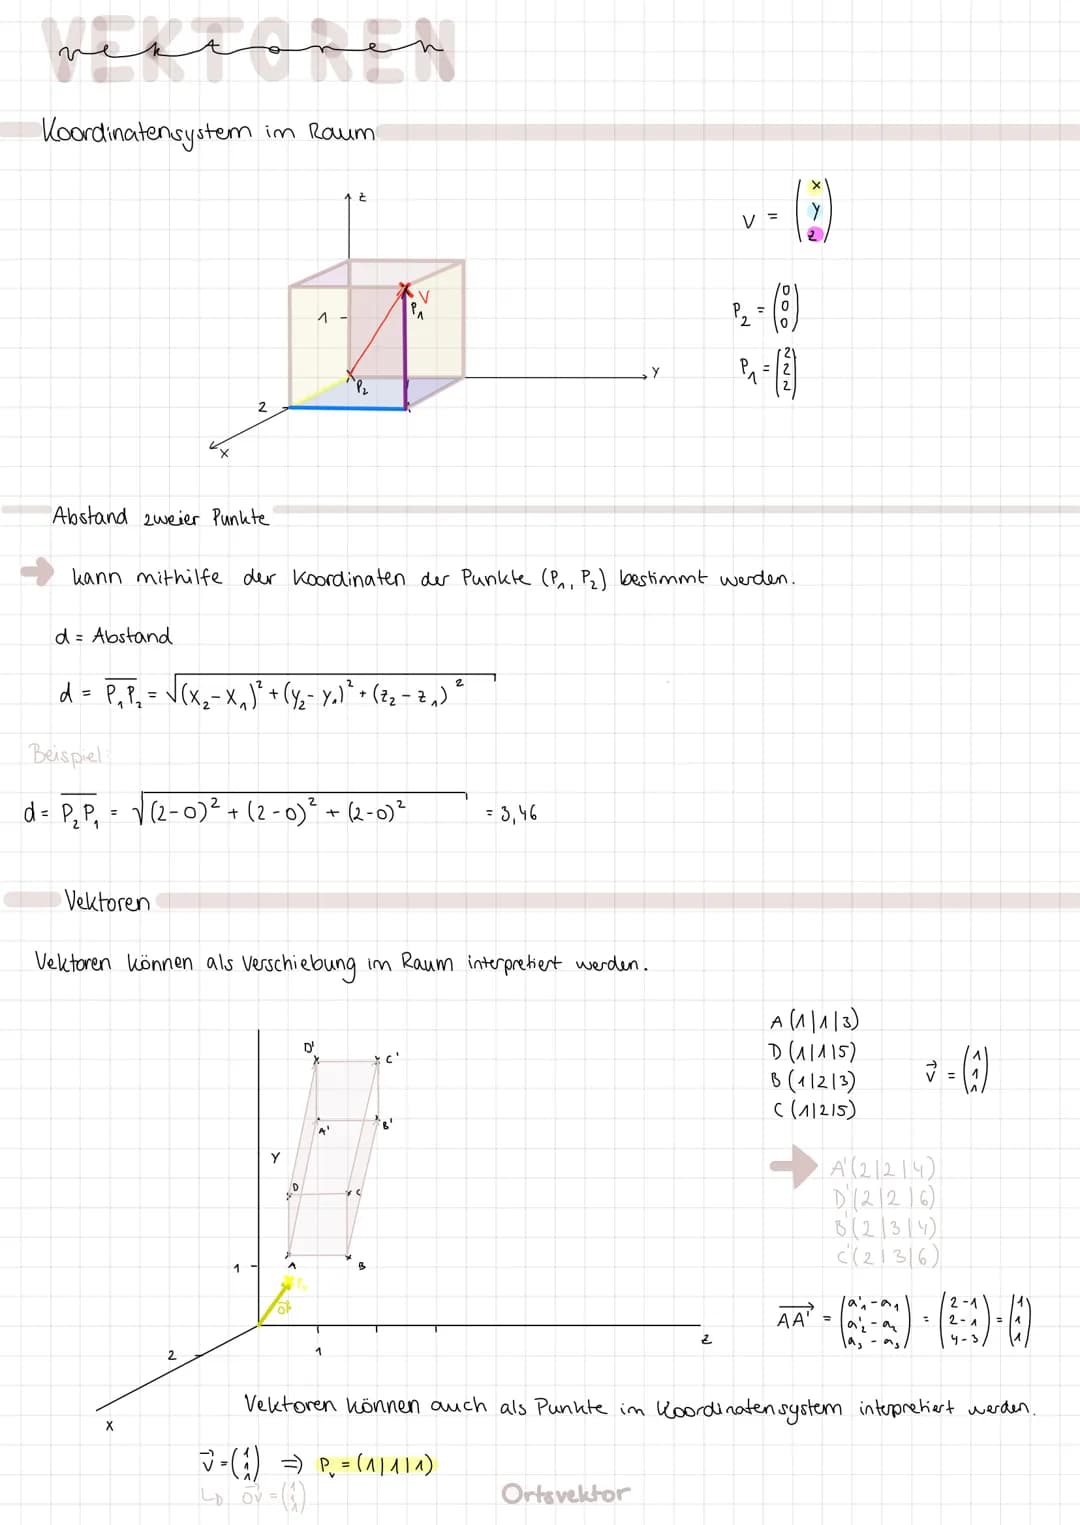 VEKTOREN
vektoren
Koordinatensystem im Raum
z
V = (x y z)
1
V
P₁
P₂ = (0 0 0)
P₁ = (2 2 2)
Y
P₂
2
x
Abstand zweier Punkte
→ kann mithilfe der Koordinaten der Punkte (P₁, P₂) bestimmt werden.
d = Abstand
d = P₁P₂ = √(x₂-x₁)² + (y₂-y₁)² + (z₂-z₁)²
Beispiel:
d = P₂P₁ = √(2-0)² + (2-0)² + (2-0)² = 3,46
Vektoren
Vektoren können als Verschiebung im Raum interpretiert werden.
A (1|1|3)
D (1|1|5)
B (1|2|3)
C (1|2|5)
v⃗ = (1 1 1)
D' C'
A' B'
Y
D C
A B
1
0⃗
→ A'(2|2|4)
D'(2|2|6)
B'(2|3|4)
C'(2|3|6)
AA'⃗ = (a'₁-a₁ a'₂-a₂ a₃-a₃) = (2-1 2-1 4-3) = (1 1 1)
2
1
z
x
Vektoren können auch als Punkte im Koordinatensystem interpretiert werden.
v⃗ = (1 1 1) ⇒ Pᵥ = (1|1|1)
↳ 0v⃗ = (1 1 1)
Ortsvektor